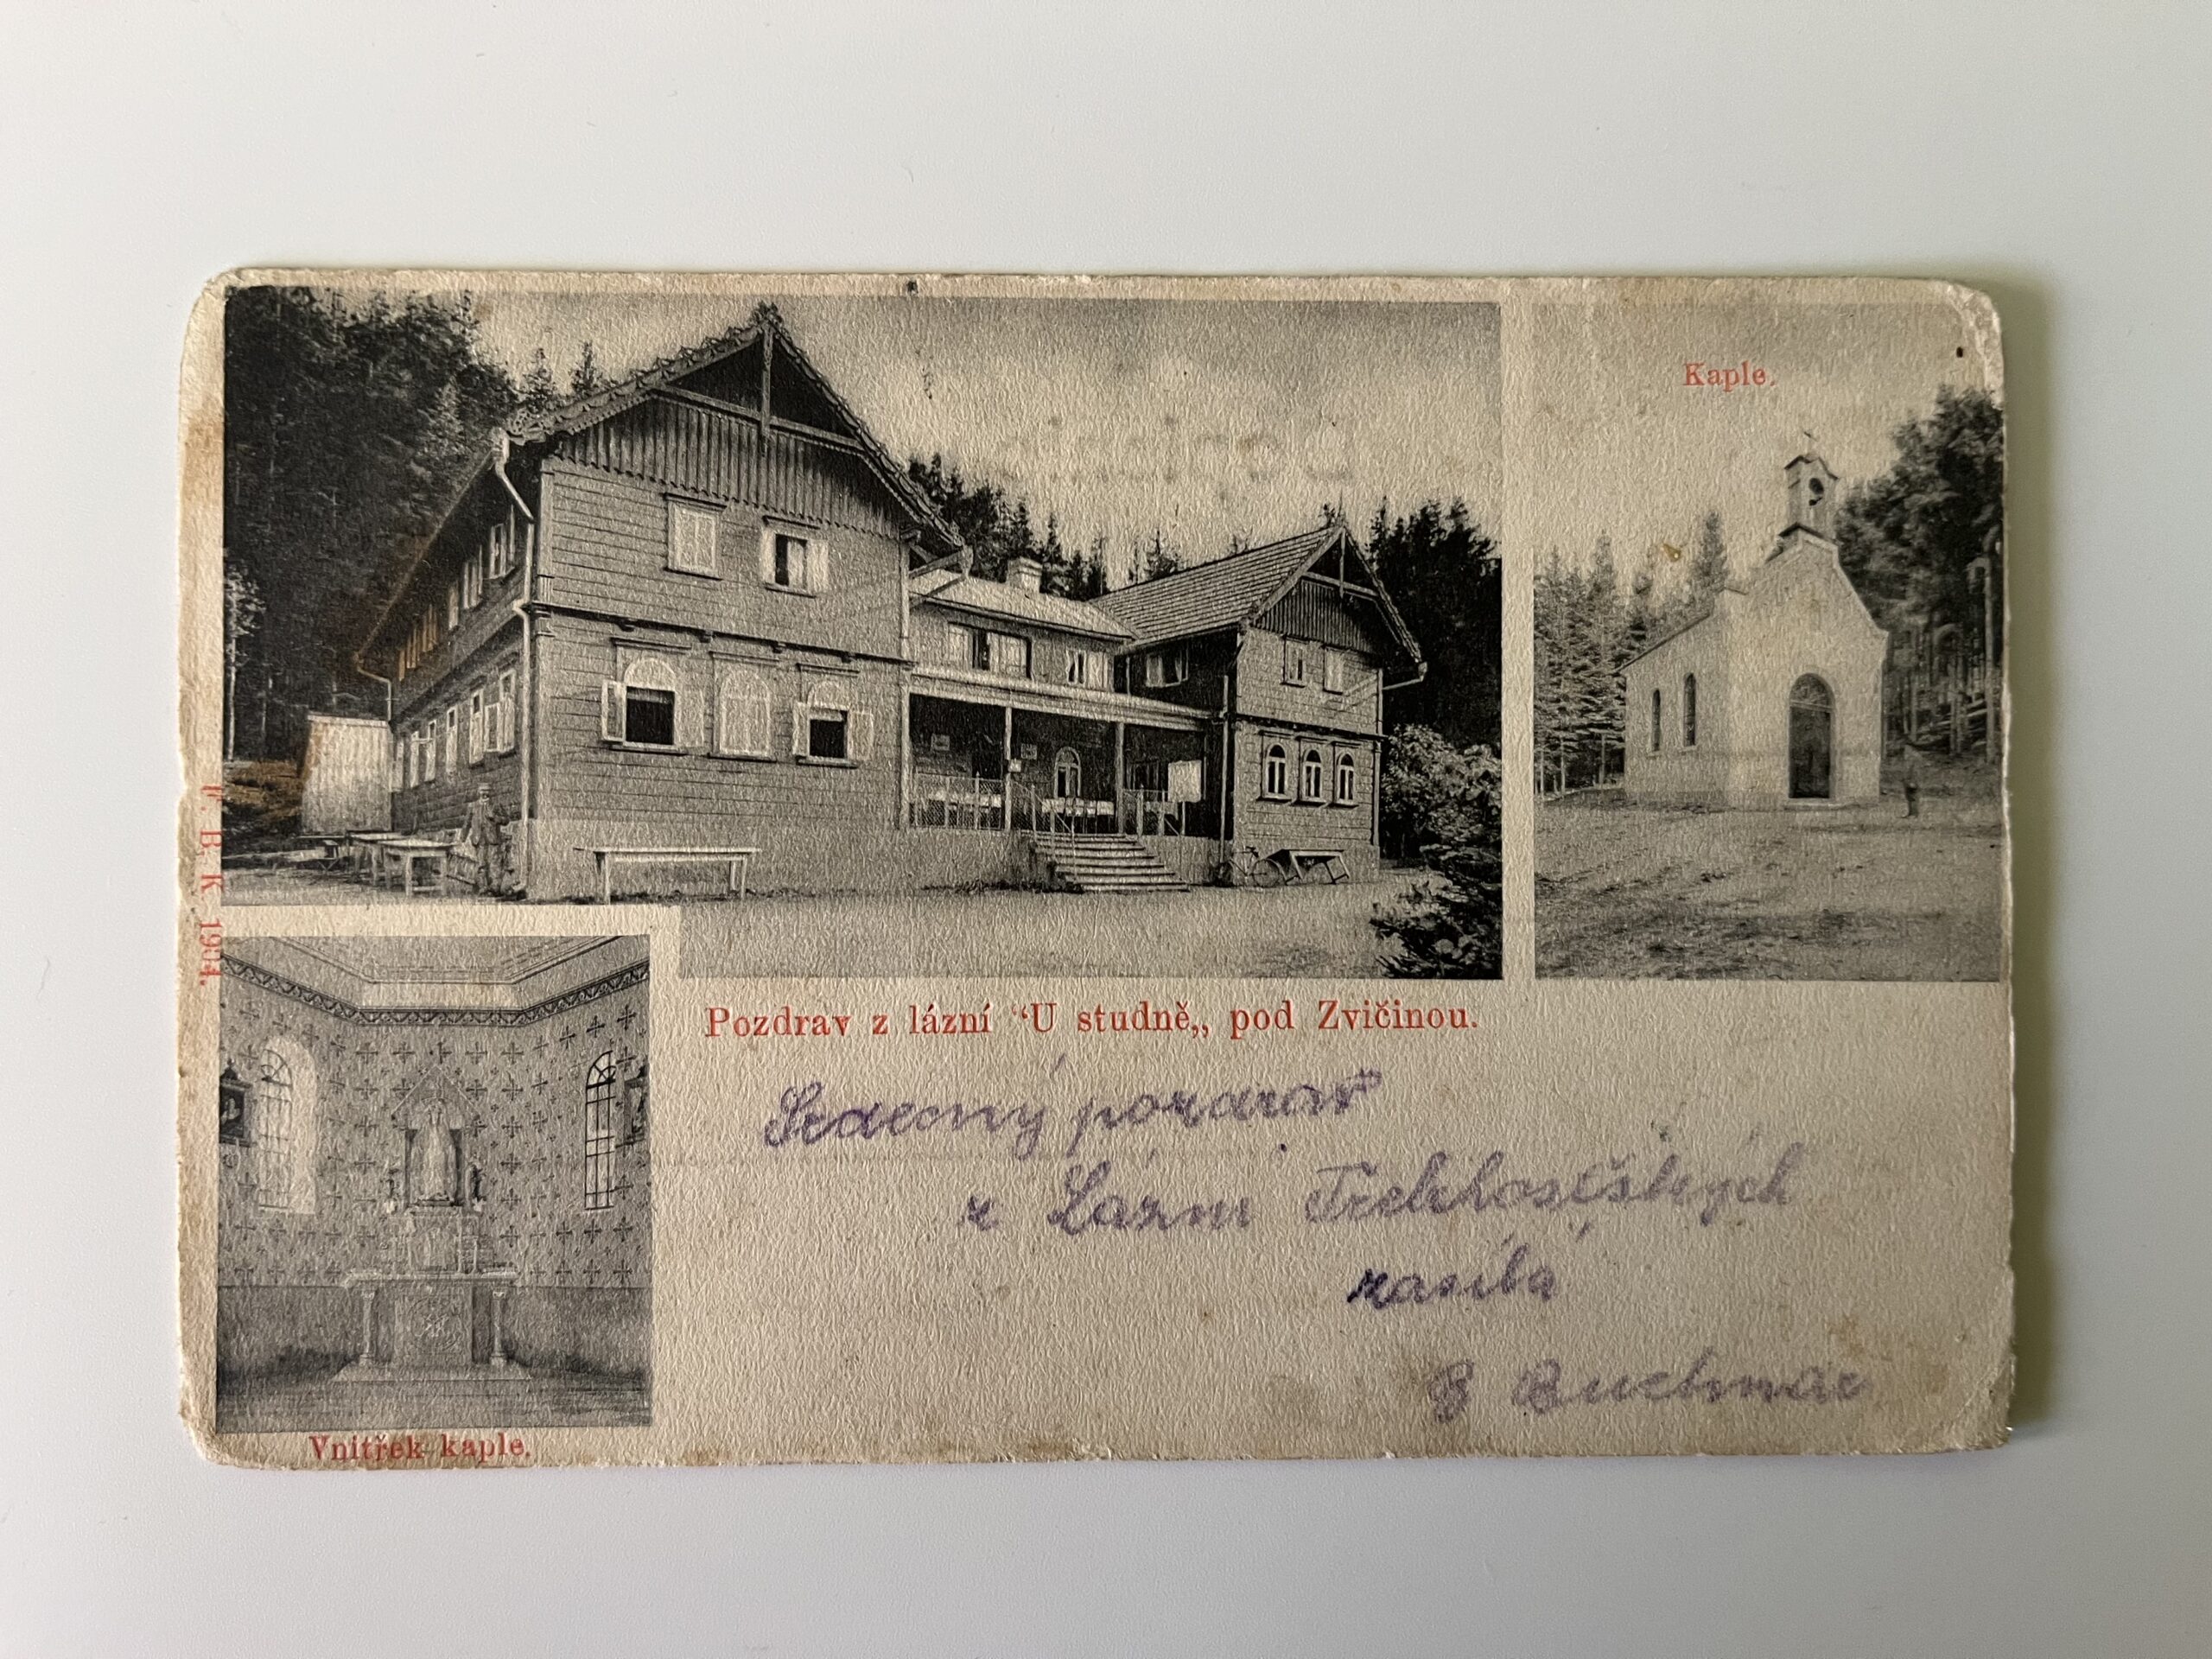 Kaple.
F. B. K. 1904.
Pozdrav z lázní “U studně„ pod Zvičinou.
Srdečný pozdrav
z Lázni Třebihošťských
zasílá
Vnitřek kaple.